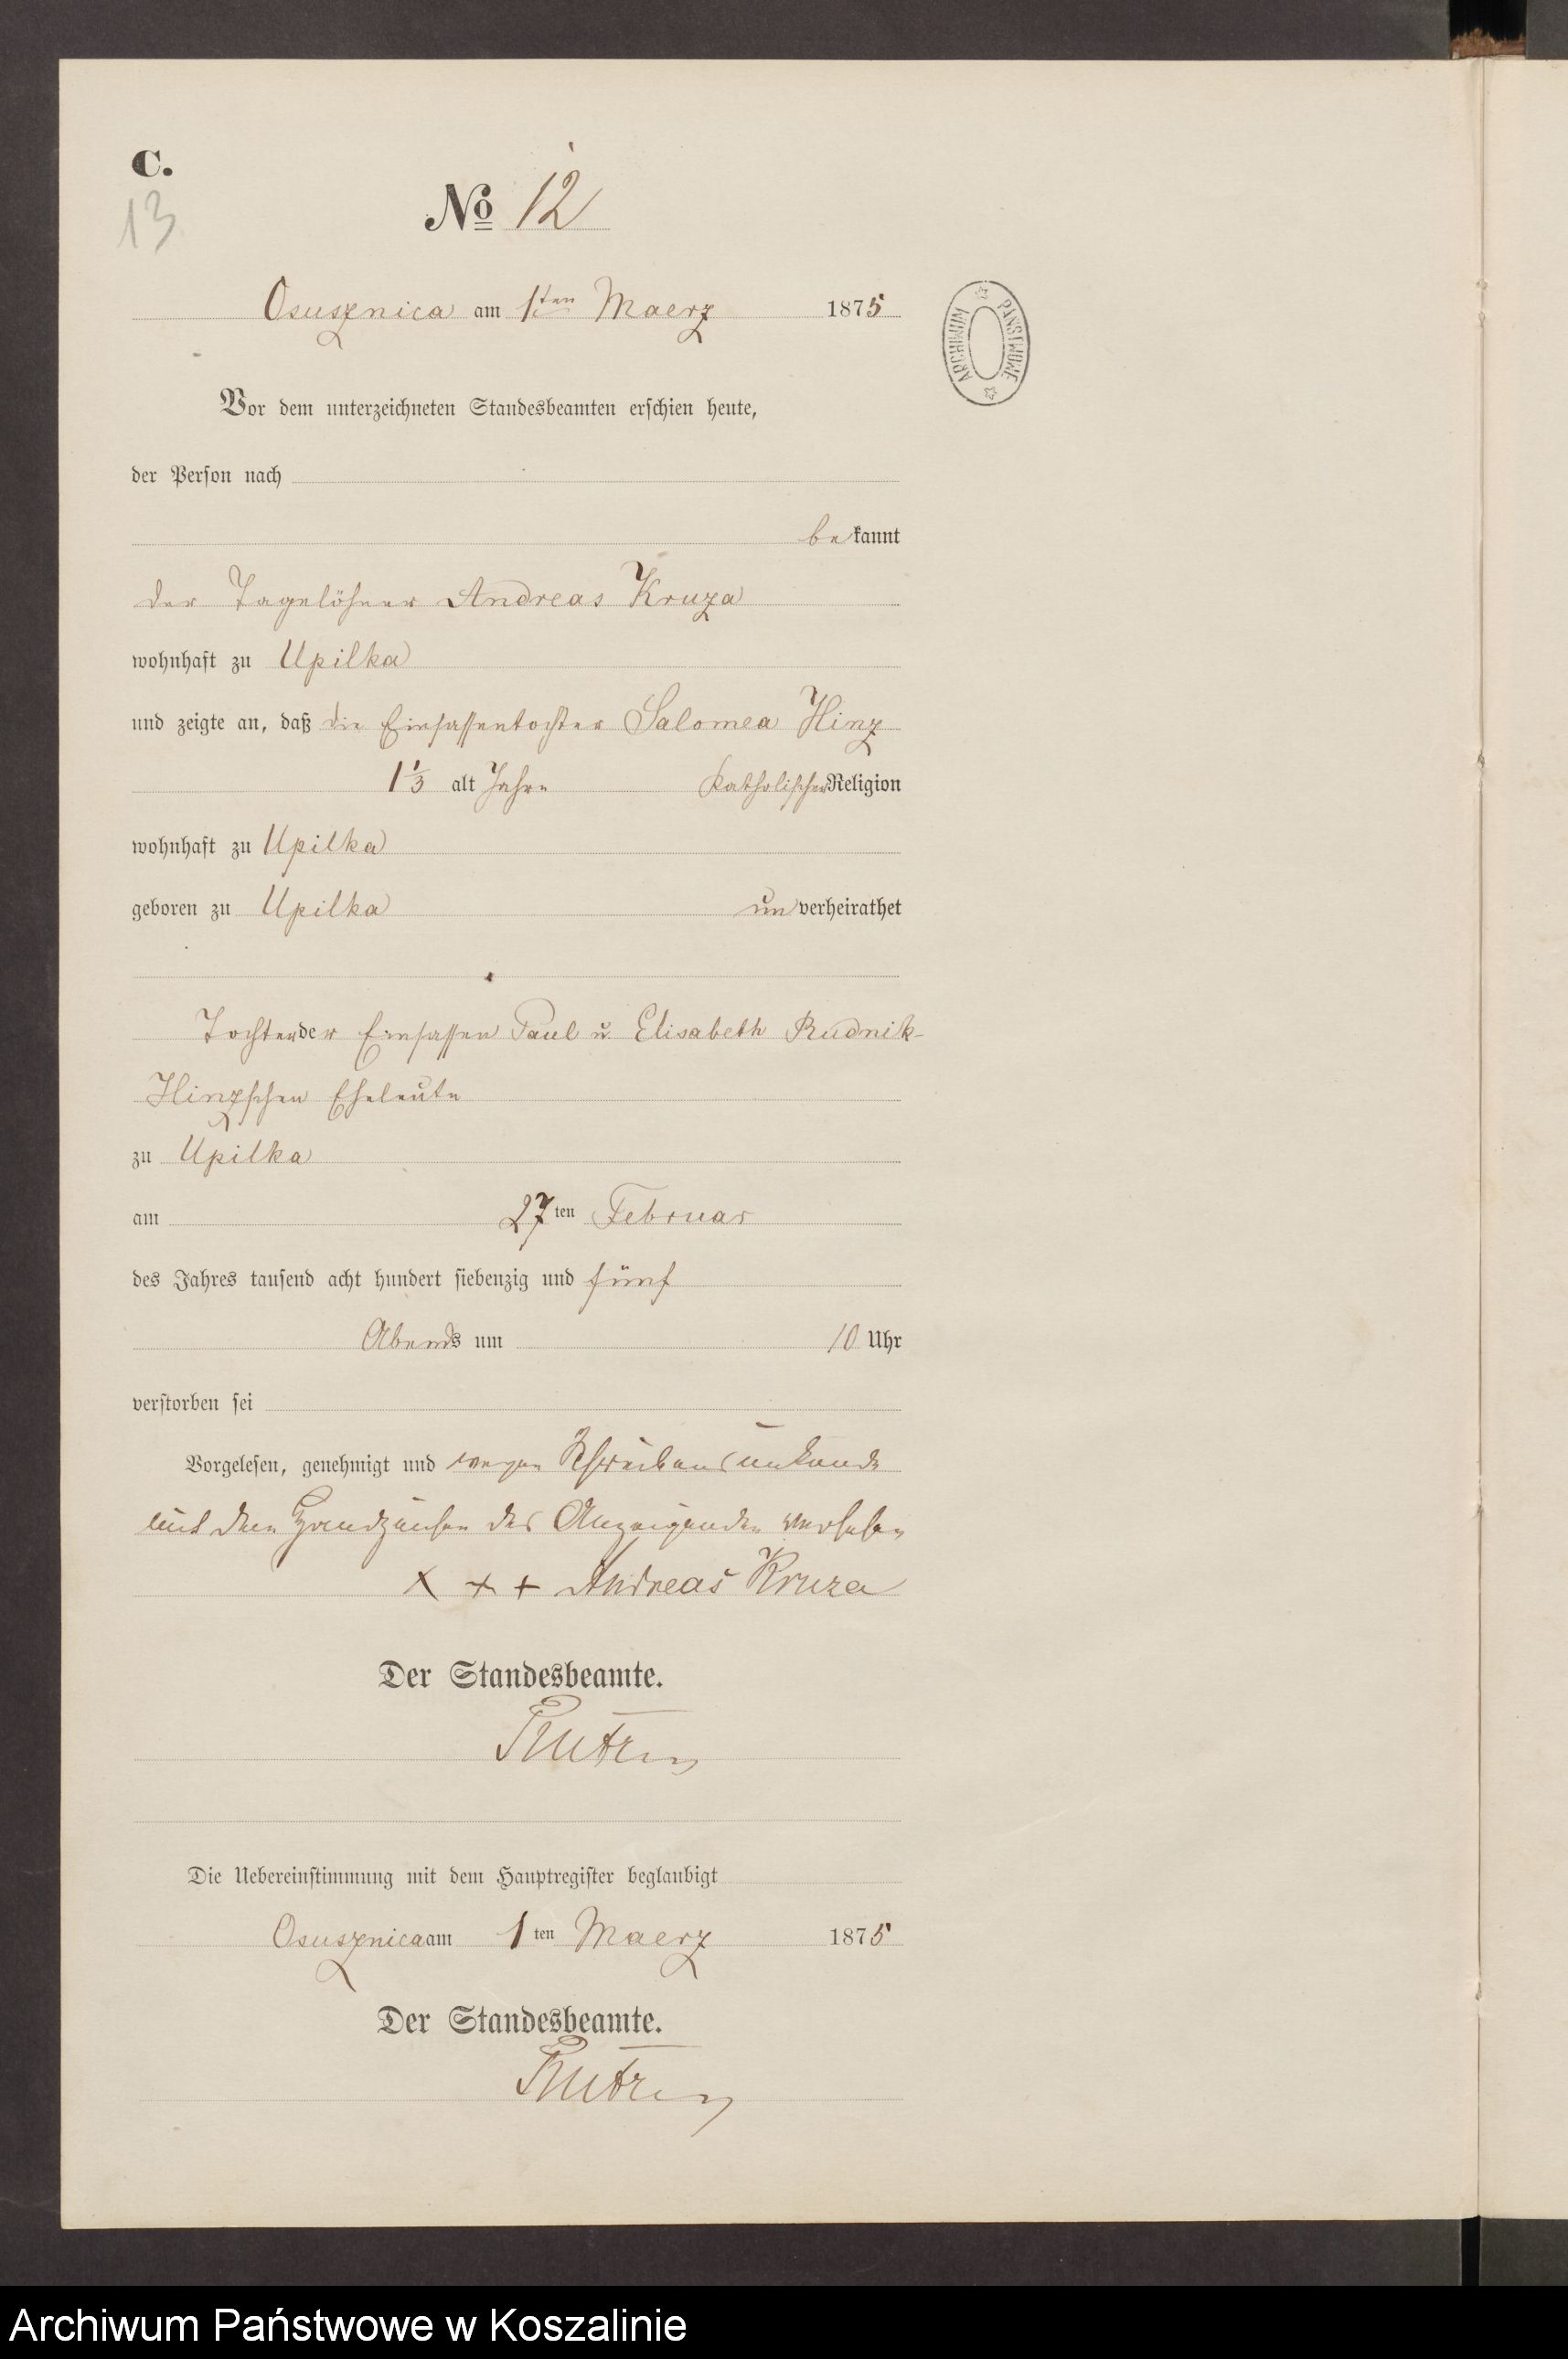 C.
13
No 12
Osusznica am 1ten Maerz 1875
ARCHIWUM PAŃSTWOWE
Vor dem unterzeichneten Standesbeamten erschien heute,
der Person nach
bekannt
der Tagelöhner Andreas Kruza
wohnhaft zu Upilka
und zeigte an, daß die Einsassentochter Salomea Hinz
1 1/3 alt Jahre katholischer Religion
wohnhaft zu Upilka
geboren zu Upilka unverheirathet
Tochter der Einsassen Paul u. Elisabeth Rudnik-
Hinzschen Eheleute
zu Upilka
am 27ten Februar
des Jahres tausend acht hundert siebenzig und fünf
Abends um 10 Uhr
verstorben sei
Vorgelesen, genehmigt und wegen Schreibensunkunde
mit dem Handzeichen des Anzeigenden versehen
x x + Andreas Kruza
Der Standesbeamte.
Die Uebereinstimmung mit dem Hauptregister beglaubigt
Osusznica am 1ten Maerz 1875
Der Standesbeamte.
Archiwum Państwowe w Koszalinie